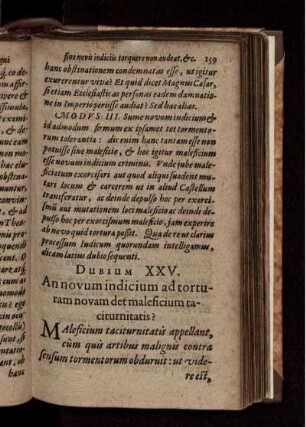 sine novis indiciis torquere non audeat, &c. 159
hanc obstinationem condemnatas esse, ut igitur
exurerentur vivæ? Et quid dicet Magnus Cæsar,
si etiam Ecclesiasticas personas eadem damnatione
in Imperio periisse audiat? Sed hæc alias.
MODVS III. Sume novum indicium &
id admodum firmum ex ipsamet tot tormentorum
tolerantia: dic enim hanc tantam esse non
potuisse sine maleficio, & hoc igitur maleficium
esse novum indicium criminis. Unde jube maleficiatum
exorcisari aut quod aliqui suadent mutari
locum & carcerem ut in aliud Castellum
transferatur, ac deinde depulso hoc per exorcismū
aut mutationem loci maleficio ac deinde depulso
hoc per exorcismum maleficio, jam experiri
ab novo quid tortura possit. Qua de re ut clarius
processum Iudicum quorundam intelligamus,
dicam latius dubio sequenti.
DUBIUM XXV.
An novum indicium ad torturam
novam det maleficium taciturnitatis?
Maleficium taciturnitatis appellant,
cùm quis artibus malignis contra
sensum tormentorum obduruit: ut videre
est,